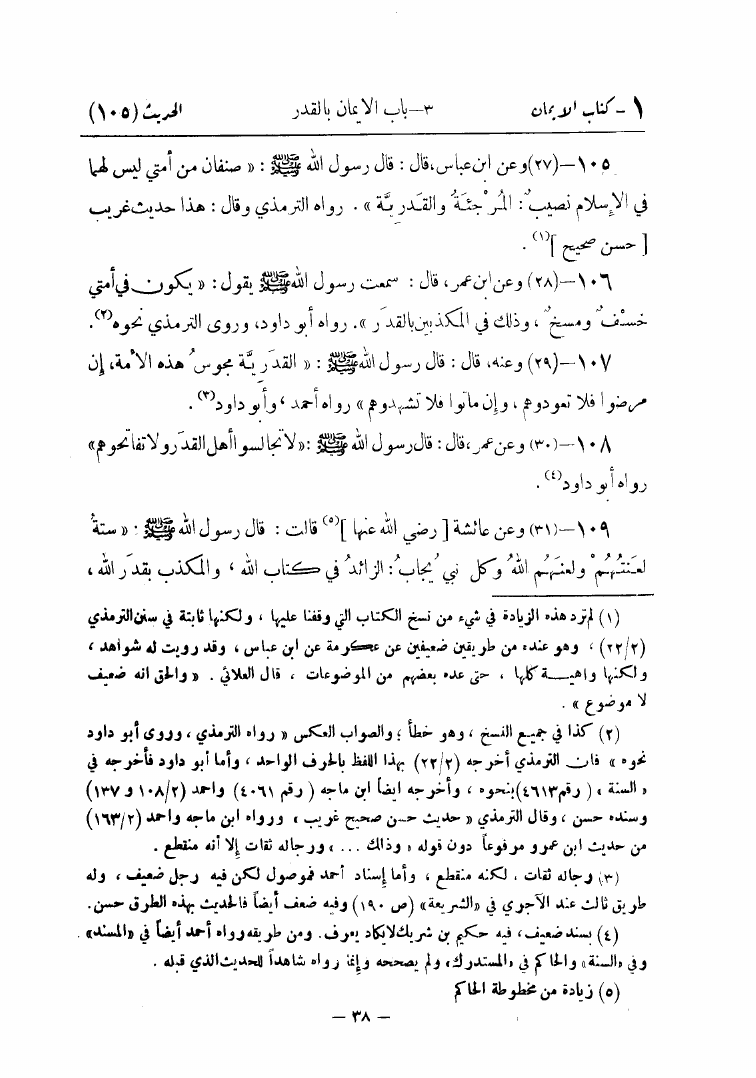 ١ - كتاب الايمان ٣ - باب الايمان بالقدر الحديث (١٠٥)
١٠٥ - (٢٧) وعن ابن عباس، قال : قال رسول الله ﷺ : « صنفان من أمتي ليس لهما
في الإسلام نصيبٌ: المُرْجِئَةُ والقَدَرِيَّة » . رواه الترمذي وقال : هذا حديث غريب
[ حسن صحيح ](١) .
١٠٦ - (٢٨) وعن ابن عمر، قال : سمعت رسول الله ﷺ يقول : « يكون في أمتي
خسْفٌ ومسخٌ ، وذلك في المكذبين بالقدَر » . رواه أبو داود، وروى الترمذي نحوه(٢).
١٠٧ - (٢٩) وعنه، قال : قال رسول الله ﷺ : « القدَريَّة مجوسُ هذه الأمة، إن
مرضوا فلا تعودوهم ، وإن ماتوا فلا تشهدوهم » رواه أحمد ، وأبو داود(٣) .
١٠٨ - (٣٠) وعن عمر ، قال : قال رسول الله ﷺ : «لا تجالسوا أهل القدَر ولا تفاتحوهم»
رواه أبو داود(٤) .
١٠٩ - (٣١) وعن عائشة [ رضي الله عنها ](٥) قالت : قال رسول الله ﷺ : « ستةٌ
لعَنتُهُمْ ولعنَهُم اللهُ وكل نبي يُجابُ: الزائدُ في كتاب الله ، والمكذب بقدَر الله ،
(١) لم ترد هذه الزيادة في شيء من نسخ الكتاب التي وقفنا عليها ، ولكنها ثابتة في سنن الترمذي
(٢٢/٢) ، وهو عنده من طريقين ضعيفين عن عكرمة عن ابن عباس ، وقد رويت له شواهد ،
ولكنها واهية كلها ، حتى عده بعضهم من الموضوعات ، قال العلائي . « والحق انه ضعيف
لا موضوع » .
(٢) كذا في جميع النسخ ، وهو خطأ ؛ والصواب العكس « رواه الترمذي ، وروى أبو داود
نحوه » فان الترمذي أخرجه (٢٢/٢) بهذا اللفظ بالحرف الواحد ، وأما أبو داود فأخرجه في
« السنة » ( رقم ٤٦١٣) بنحوه ، وأخرجه ايضاً ابن ماجه ( رقم ٤٠٦١) واحمد (١٠٨/٢ و ١٣٧)
وسنده حسن ، وقال الترمذي « حديث حسن صحيح غريب » ورواه ابن ماجه واحمد (١٦٣/٢)
من حديث ابن عمرو مرفوعاً دون قوله « وذلك ... » ورجاله ثقات إلا أنه منقطع .
(٣) رجاله ثقات ، لكنه منقطع ، وأما إسناد أحمد فموصول لكن فيه رجل ضعيف ، وله
طريق ثالث عند الآجري في «الشريعة» (ص ١٩٠) وفيه ضعف أيضاً فالحديث بهذه الطرق حسن.
(٤) بسند ضعيف، فيه حكيم بن شريك لا يكاد يعرف. ومن طريقه رواه أحمد أيضاً في «المسند» .
وفي «السنة» والحاكم في «المستدرك» ولم يصححه وإنما رواه شاهداً للحديث الذي قبله .
(٥) زيادة من مخطوطة الحاكم
— ٣٨ —